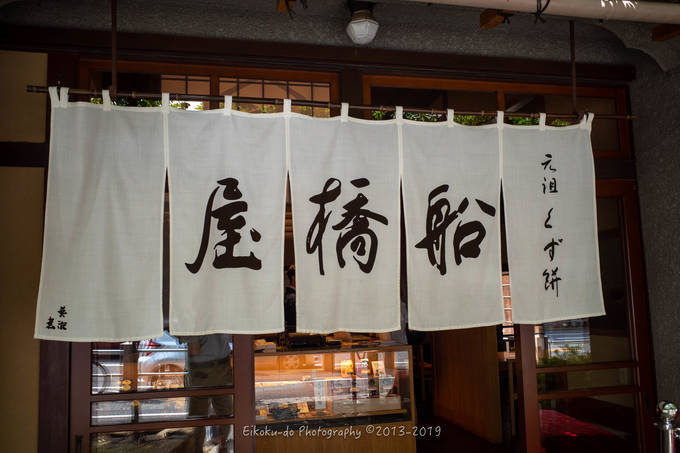 元祖くず餅
船橋屋
Eikoku-do Photography ©2013-2019